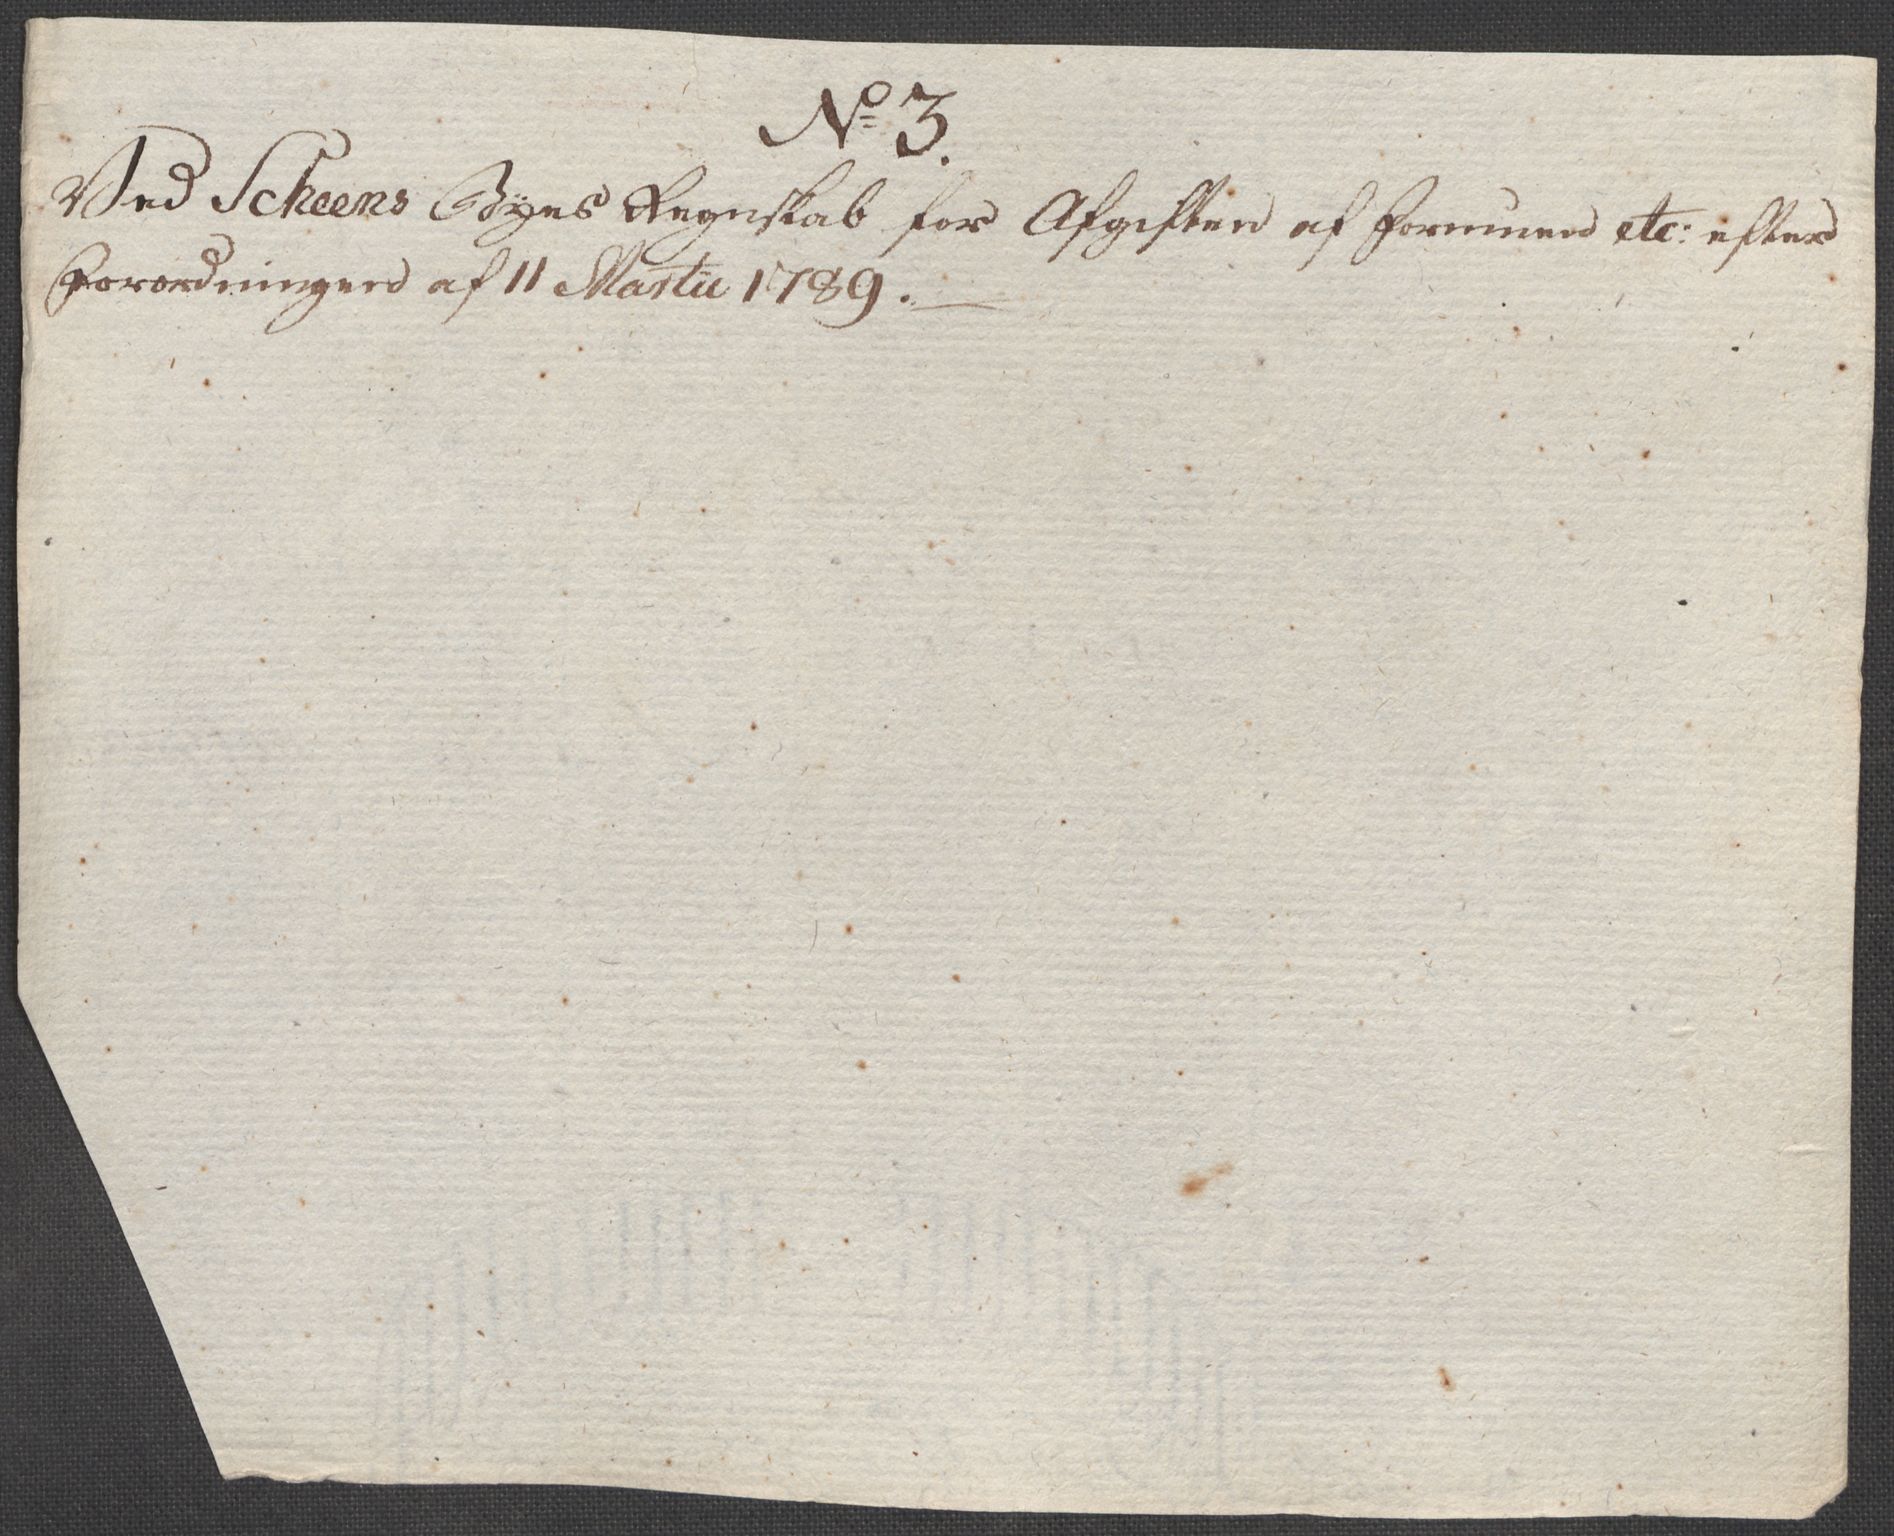 No 3.
Ved Scheens Byes Regnskab for Afgiften af Formuen etc: efter
Forordningen af 11 Martii 1789.